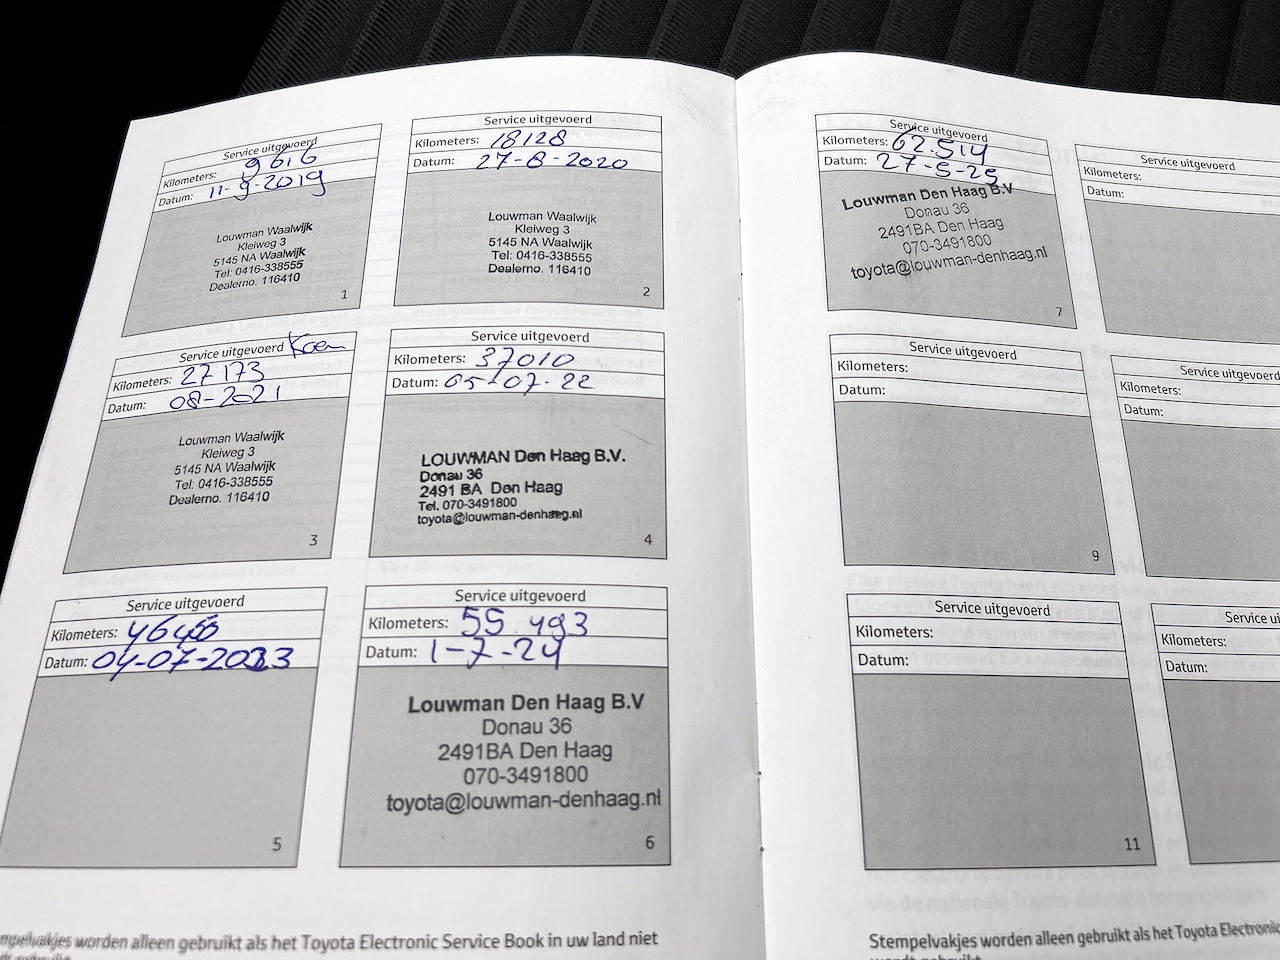 Service uitgevoerd
Kilometers: 9616
Datum: 11-9-2019
Louwman Waalwijk
Kleiweg 3
5145 NA Waalwijk
Tel: 0416-338555
Dealerno. 116410
1
Service uitgevoerd
Kilometers: 18128
Datum: 27-8-2020
Louwman Waalwijk
Kleiweg 3
5145 NA Waalwijk
Tel: 0416-338555
Dealerno. 116410
2
Service uitgevoerd Koen
Kilometers: 27173
Datum: 08-2021
Louwman Waalwijk
Kleiweg 3
5145 NA Waalwijk
Tel: 0416-338555
Dealerno. 116410
3
Service uitgevoerd
Kilometers: 37010
Datum: 05-07-22
LOUWMAN Den Haag B.V.
Donau 36
2491 BA Den Haag
Tel. 070-3491800
toyota@louwman-denhaag.nl
4
Service uitgevoerd
Kilometers:
Datum: 04-07-2023
5
Service uitgevoerd
Kilometers: 55.493
Datum: 1-7-24
Louwman Den Haag B.V
Donau 36
2491BA Den Haag
070-3491800
toyota@louwman-denhaag.nl
6
worden alleen gebruikt als het Toyota Electronic Service Book in uw land niet
Service uitgevoerd
Kilometers: 62.514
Datum: 27-5-25
Louwman Den Haag B.V
Donau 36
2491BA Den Haag
070-3491800
toyota@louwman-denhaag.nl
7
Service uitgevoerd
Kilometers:
Datum:
Service uitgevoerd
Kilometers:
Datum:
9
Service uitgevoerd
Kilometers:
Datum:
Service uitgevoerd
Kilometers:
Datum:
11
Service
Kilometers:
Datum:
Stempelvakjes worden alleen gebruikt als het Toyota Electronic
wordt gebruikt.